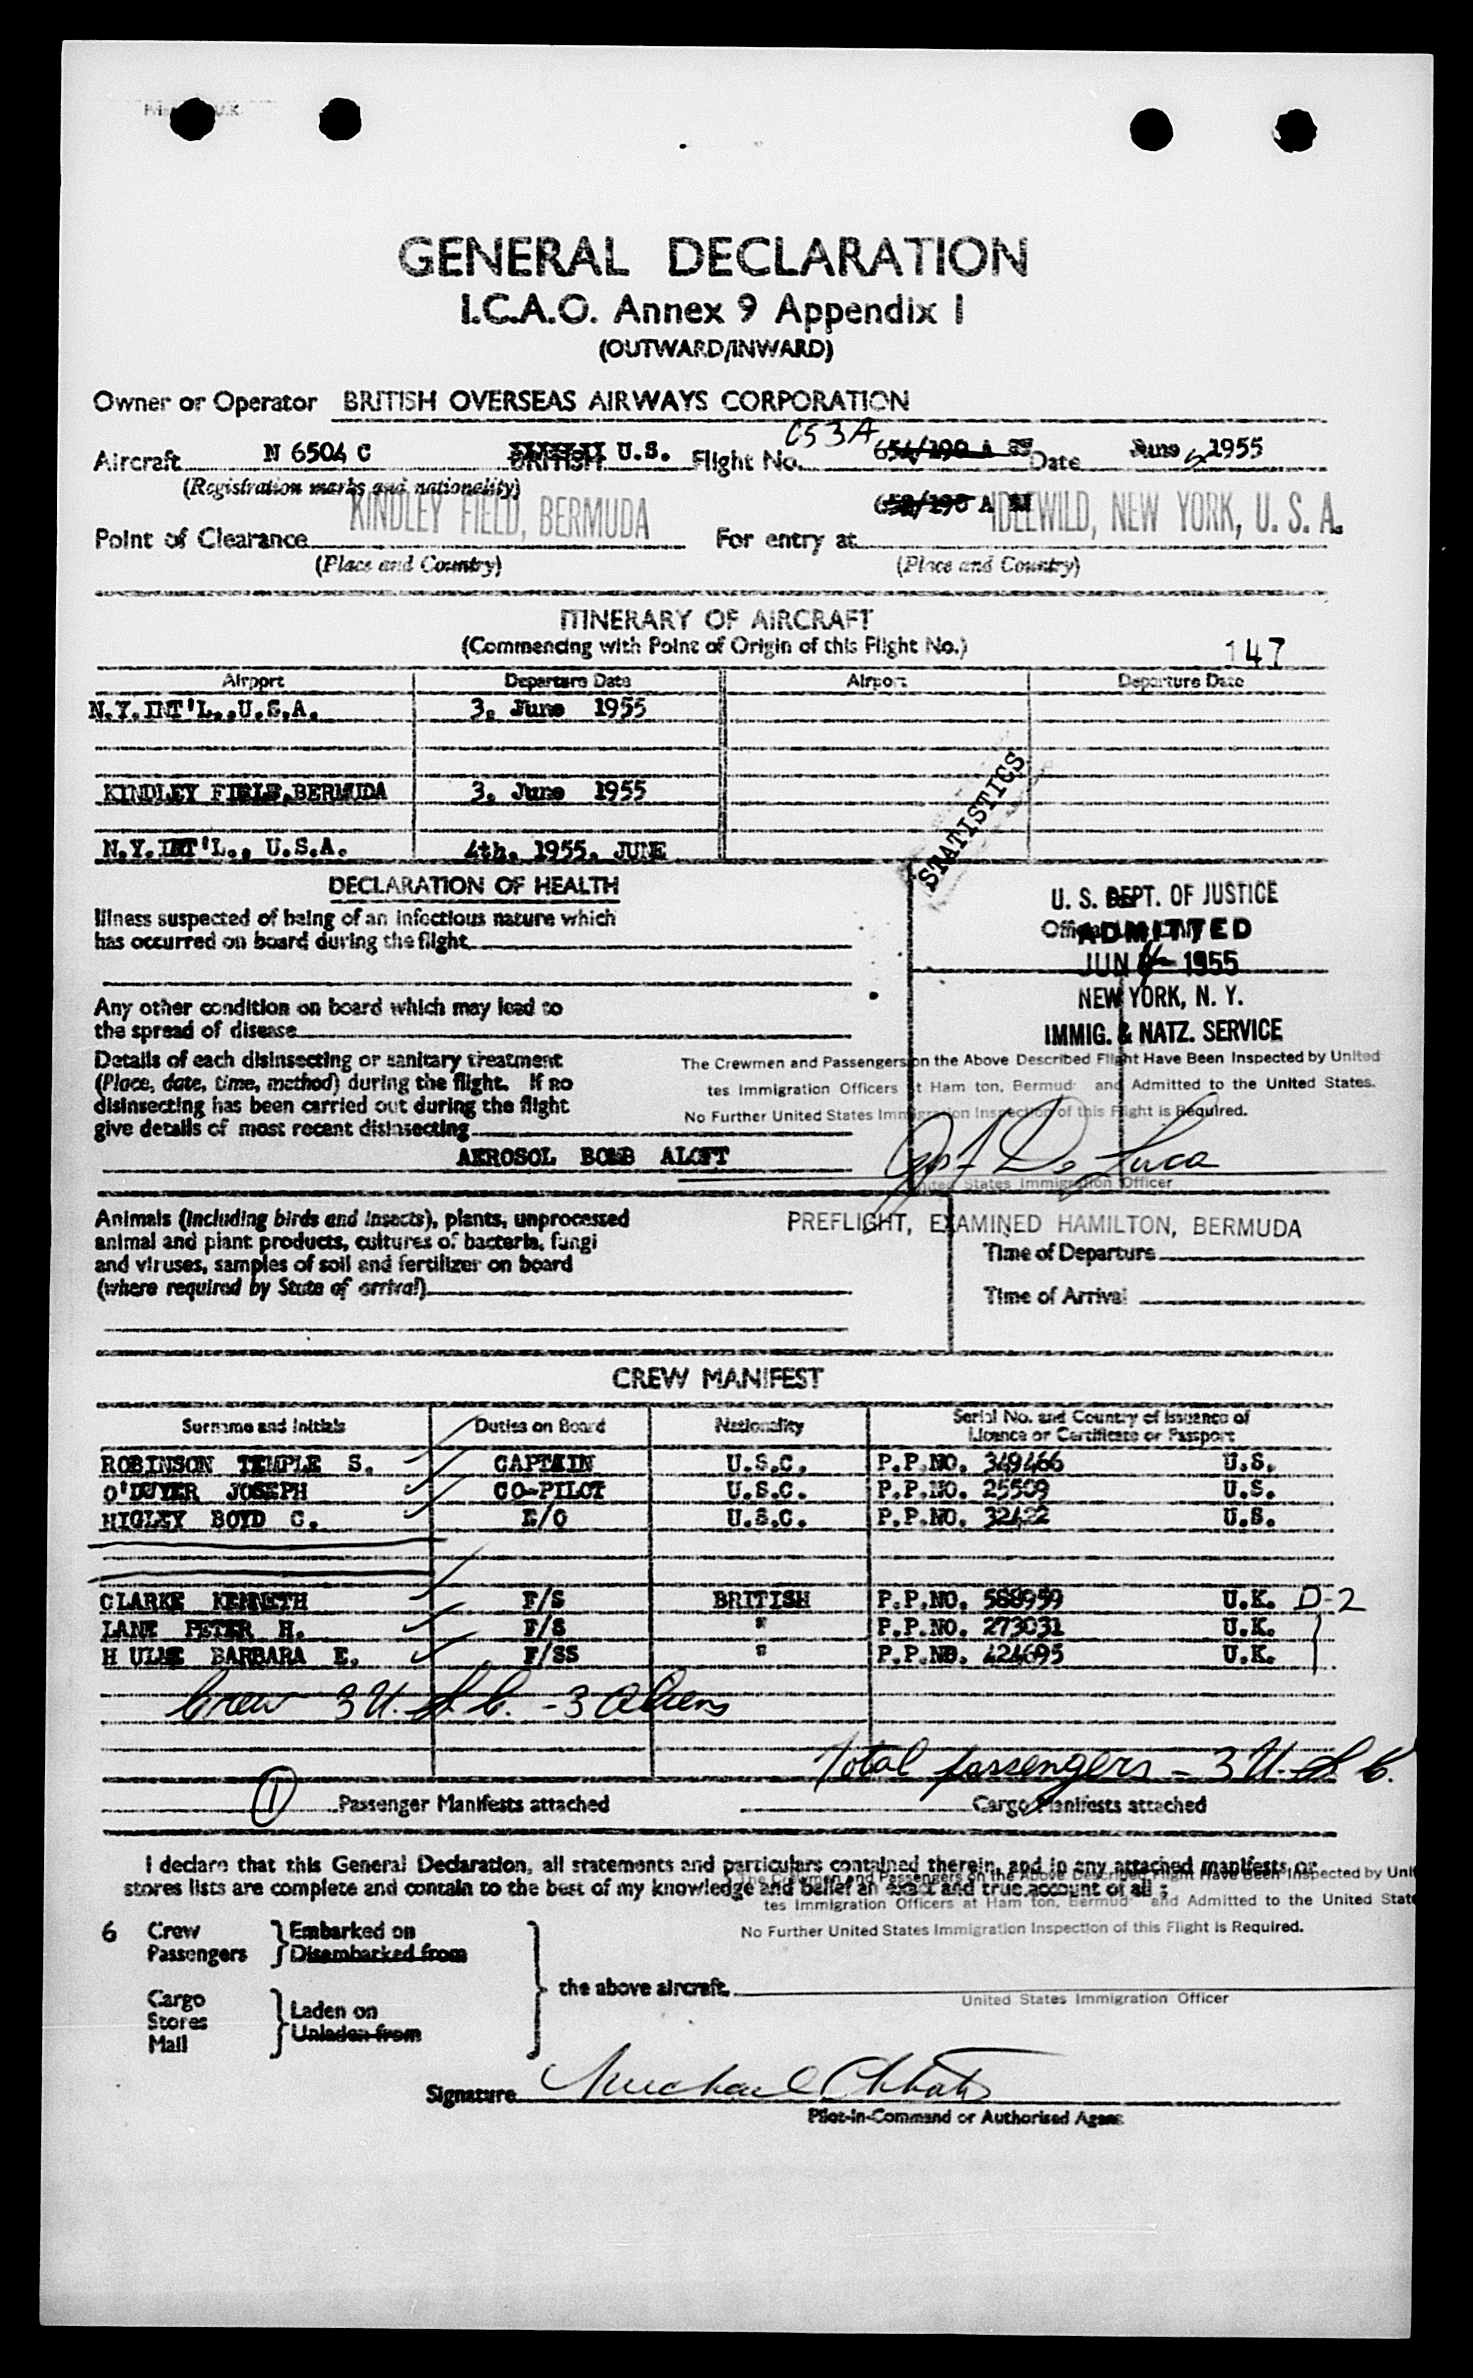 GENERAL DECLARATION
I.C.A.O. Annex 9 Appendix I
(OUTWARD/INWARD)
Owner or Operator BRITISH OVERSEAS AIRWAYS CORPORATION
Aircraft N 6504 C BRITISH U.S. Flight No. 653A 654/190 A Date June 1955
(Registration marks and nationality)
KINDLEY FIELD, BERMUDA IDLEWILD, NEW YORK, U. S. A.
Point of Clearance For entry at
(Place and Country) (Place and Country)
ITINERARY OF AIRCRAFT
(Commencing with Point of Origin of this Flight No.)
147
Airport Departure Date Airport Departure Date
N.Y.INT'L.,U.S.A. 3. June 1955
KINDLEY FIELD,BERMUDA 3. June 1955
N.Y.INT'L., U.S.A. 4th. 1955. JUNE
STATISTICS
DECLARATION OF HEALTH
Illness suspected of being of an infectious nature which
has occurred on board during the flight
U. S. DEPT. OF JUSTICE
ADMITTED
JUN 4 - 1955
NEW YORK, N. Y.
IMMIG. & NATZ. SERVICE
Any other condition on board which may lead to
the spread of disease
Details of each disinsecting or sanitary treatment
(Place, date, time, method) during the flight. If no
disinsecting has been carried out during the flight
give details of most recent disinsecting
AEROSOL BOMB ALOFT
The Crewmen and Passengers on the Above Described Flight Have Been Inspected by United
tes Immigration Officers at Ham ton, Bermud and Admitted to the United States.
No Further United States Immigration Inspection of this Flight is Required.
De Luca
United States Immigration Officer
PREFLIGHT, EXAMINED HAMILTON, BERMUDA
Animals (including birds and insects), plants, unprocessed
animal and plant products, cultures of bacteria, fungi
and viruses, samples of soil and fertilizer on board
(where required by State of arrival)
Time of Departure
Time of Arrival
CREW MANIFEST
Surname and Initials Duties on Board Nationality Serial No. and Country of Issuance of
Licence or Certificate or Passport
ROBINSON TEMPLE S. CAPTAIN U.S.C. P.P.NO. 349466 U.S.
O'DWYER JOSEPH CO-PILOT U.S.C. P.P.NO. 25509 U.S.
HIGLEY BOYD C. E/O U.S.C. P.P.NO. 32422 U.S.
CLARKE KENNETH F/S BRITISH P.P.NO. 588959 U.K. D-2
LANE PETER H. F/S " P.P.NO. 273031 U.K.
H ULME BARBARA E. F/SS " P.P.NO. 424695 U.K.
Crew 3 U.S.C. - 3 Aliens
Total passengers - 3 U.S.C.
1 Passenger Manifests attached Cargo Manifests attached
I declare that this General Declaration, all statements and particulars contained therein, and in any attached manifests or
stores lists are complete and contain to the best of my knowledge and belief an exact and true account of all :
The Crewmen and Passengers on the Above Described Flight Have Been Inspected by Uni
tes Immigration Officers at Ham ton, Bermud and Admitted to the United Stat
No Further United States Immigration Inspection of this Flight is Required.
6 Crew Embarked on
Passengers Disembarked from
the above aircraft.
United States Immigration Officer
Cargo Laden on
Stores Unladen from
Mail
Signature
Pilot-in-Command or Authorised Agent